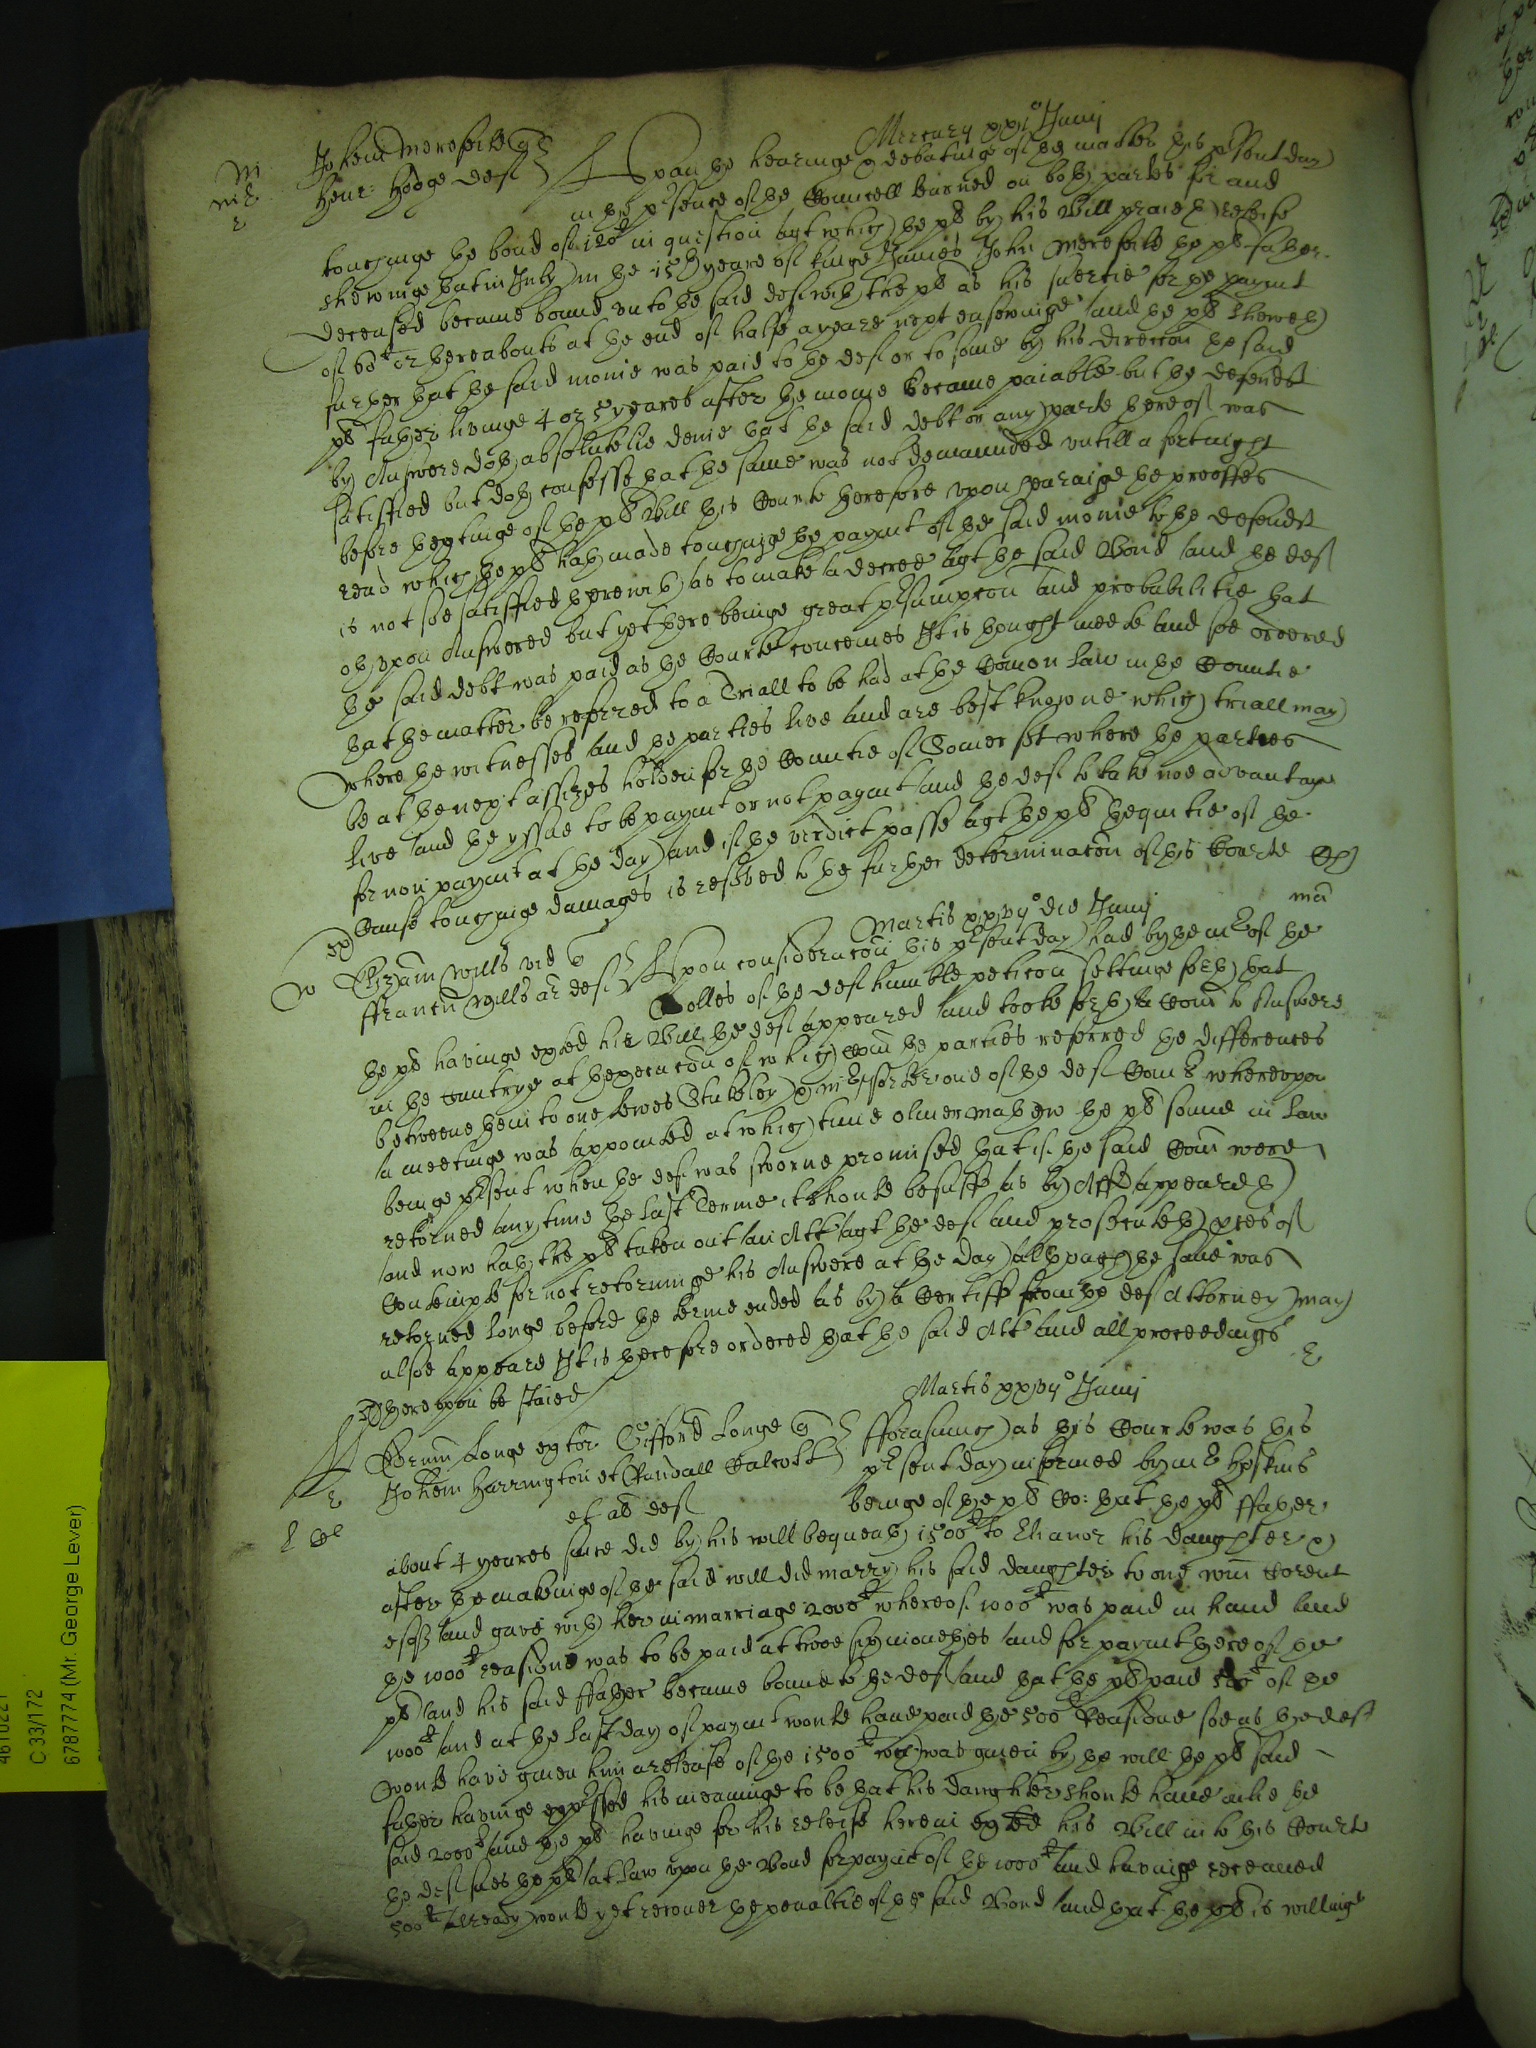 Mercurij xxjº Junij
Johem Merefeild quer
Henr: Hodge def
Upon the hearinge & debatinge of the matter this pñt day
in the pñce of the Councell learned on both partes for and
touchinge the bond of 120li in question agt which the pl by his Bill praieth releife
shewinge that in July in the 15th yeare of kinge James John Merefeild the pls father
deceased became bound unto the said def with the pl as his suertie for the paymt
of 60li or thereabouts at the end of halfe a yeare next ensewinge and the pl sheweth
further that the said monie was paid to the def or to some by his direccon the said
pls father livinge 4 or 5 yeares after the monie became paiable but the defendt
by Answere doth absolutelie denie that the said debt or any parte thereof was
satisfied but doth confesse that the same was not demaunded untill a fortnight
before the exhibitinge of the pls Bill this Courte therefore upon hearinge the prooffes
read which the pl hath made touchinge the paymt of the said monie to the defendt
is not soe satisfied therewith as to make a decree agt the said Bond and the def
oth upon Answered but yet there beinge great p̃sumpcon and probabilitie that
the said debt was paid as the Courte conceives It is thought meete and soe ordered
that the matter be referred to a Triall to be had at the Comon Law in the Countie
where the witnesses and the parties live and are best knowne which triall may
be at the next assizes holden for the Countie of Somerset where the parties
live and the yssue to be paymt or not paymt and the def to take noe advantage
for non paymt at the day and if the verdict passe agt the pl the equitie of the
Cause touchinge damages is reserved to the further determinacon of this Courte
Martis xxvijº die Junij
Wills vid quer
Wills ar def
Upon consideracon this pñt day had by the Mr of the
Rolles of the defs humble peticon settinge forth that
the pl havinge exhited her Bill the def appeared and tooke forth a Comn to Answere
in the Cuntrye at the execucon of which Comn the parties referred the differences
betweene them to one Lewes Stukeley & Mr fforster one of the defs Comrs whereupon
a meetinge was appointed at which time Oliver Mathew the pls sonne in law
beinge p̃sent when the def was sworne promised that if the said Comn were
retorned any time the last Terme it should be suff as by Affid appeareth
and now hath the pl taken out an Att agt the def and prosecuteth pces of
Contempte for not retorninge his Answere at the day although the same was
retorned longe before the terme ended as by a Certiff from the defs Attorney may
alsoe appeare It is therefore ordered that the said Att and all proceedings
thereupon be staied
Martis xxvijº Junij
Longe ex tor Gifford Longe quer
Johem Harrington et Randall Calcott
et al def
fforasmuch as this Courte was this
p̃sent day informed by Mr Hoskins
beinge of the pls Co: that the pls ffather
about 4 yeares since did by his will bequeath 1500li to Elianor his daughter &
after the makinge of the said will did marry his said daughter to one Wm Corent
esqr and gave with her in marriage 2000li whereof 1000li was paid in hand and
the 1000li residue was to be paid at twoe six monethes and for paymt thereof the
pl and his said ffather became bound to the def and that the pl paid 500li of the
1000li and at the last day of paymt would have paid the 500li residue soe as the def
would have given him a release of the 1500li wch was given by the will the pls said
father havinge exp̃ssed his meaninge to be that his daughter should have onlie the
said 2000li and the pl havinge for his releife herein exhited his Bill into this Courte
the def sues the pl at law upon the Bond for paymt of the 1000li and havinge received
500li already would yet recover the penaltie of the said Bond and that the pl is willinge
4610221
C 33/172
6787774 (Mr. George Lever)